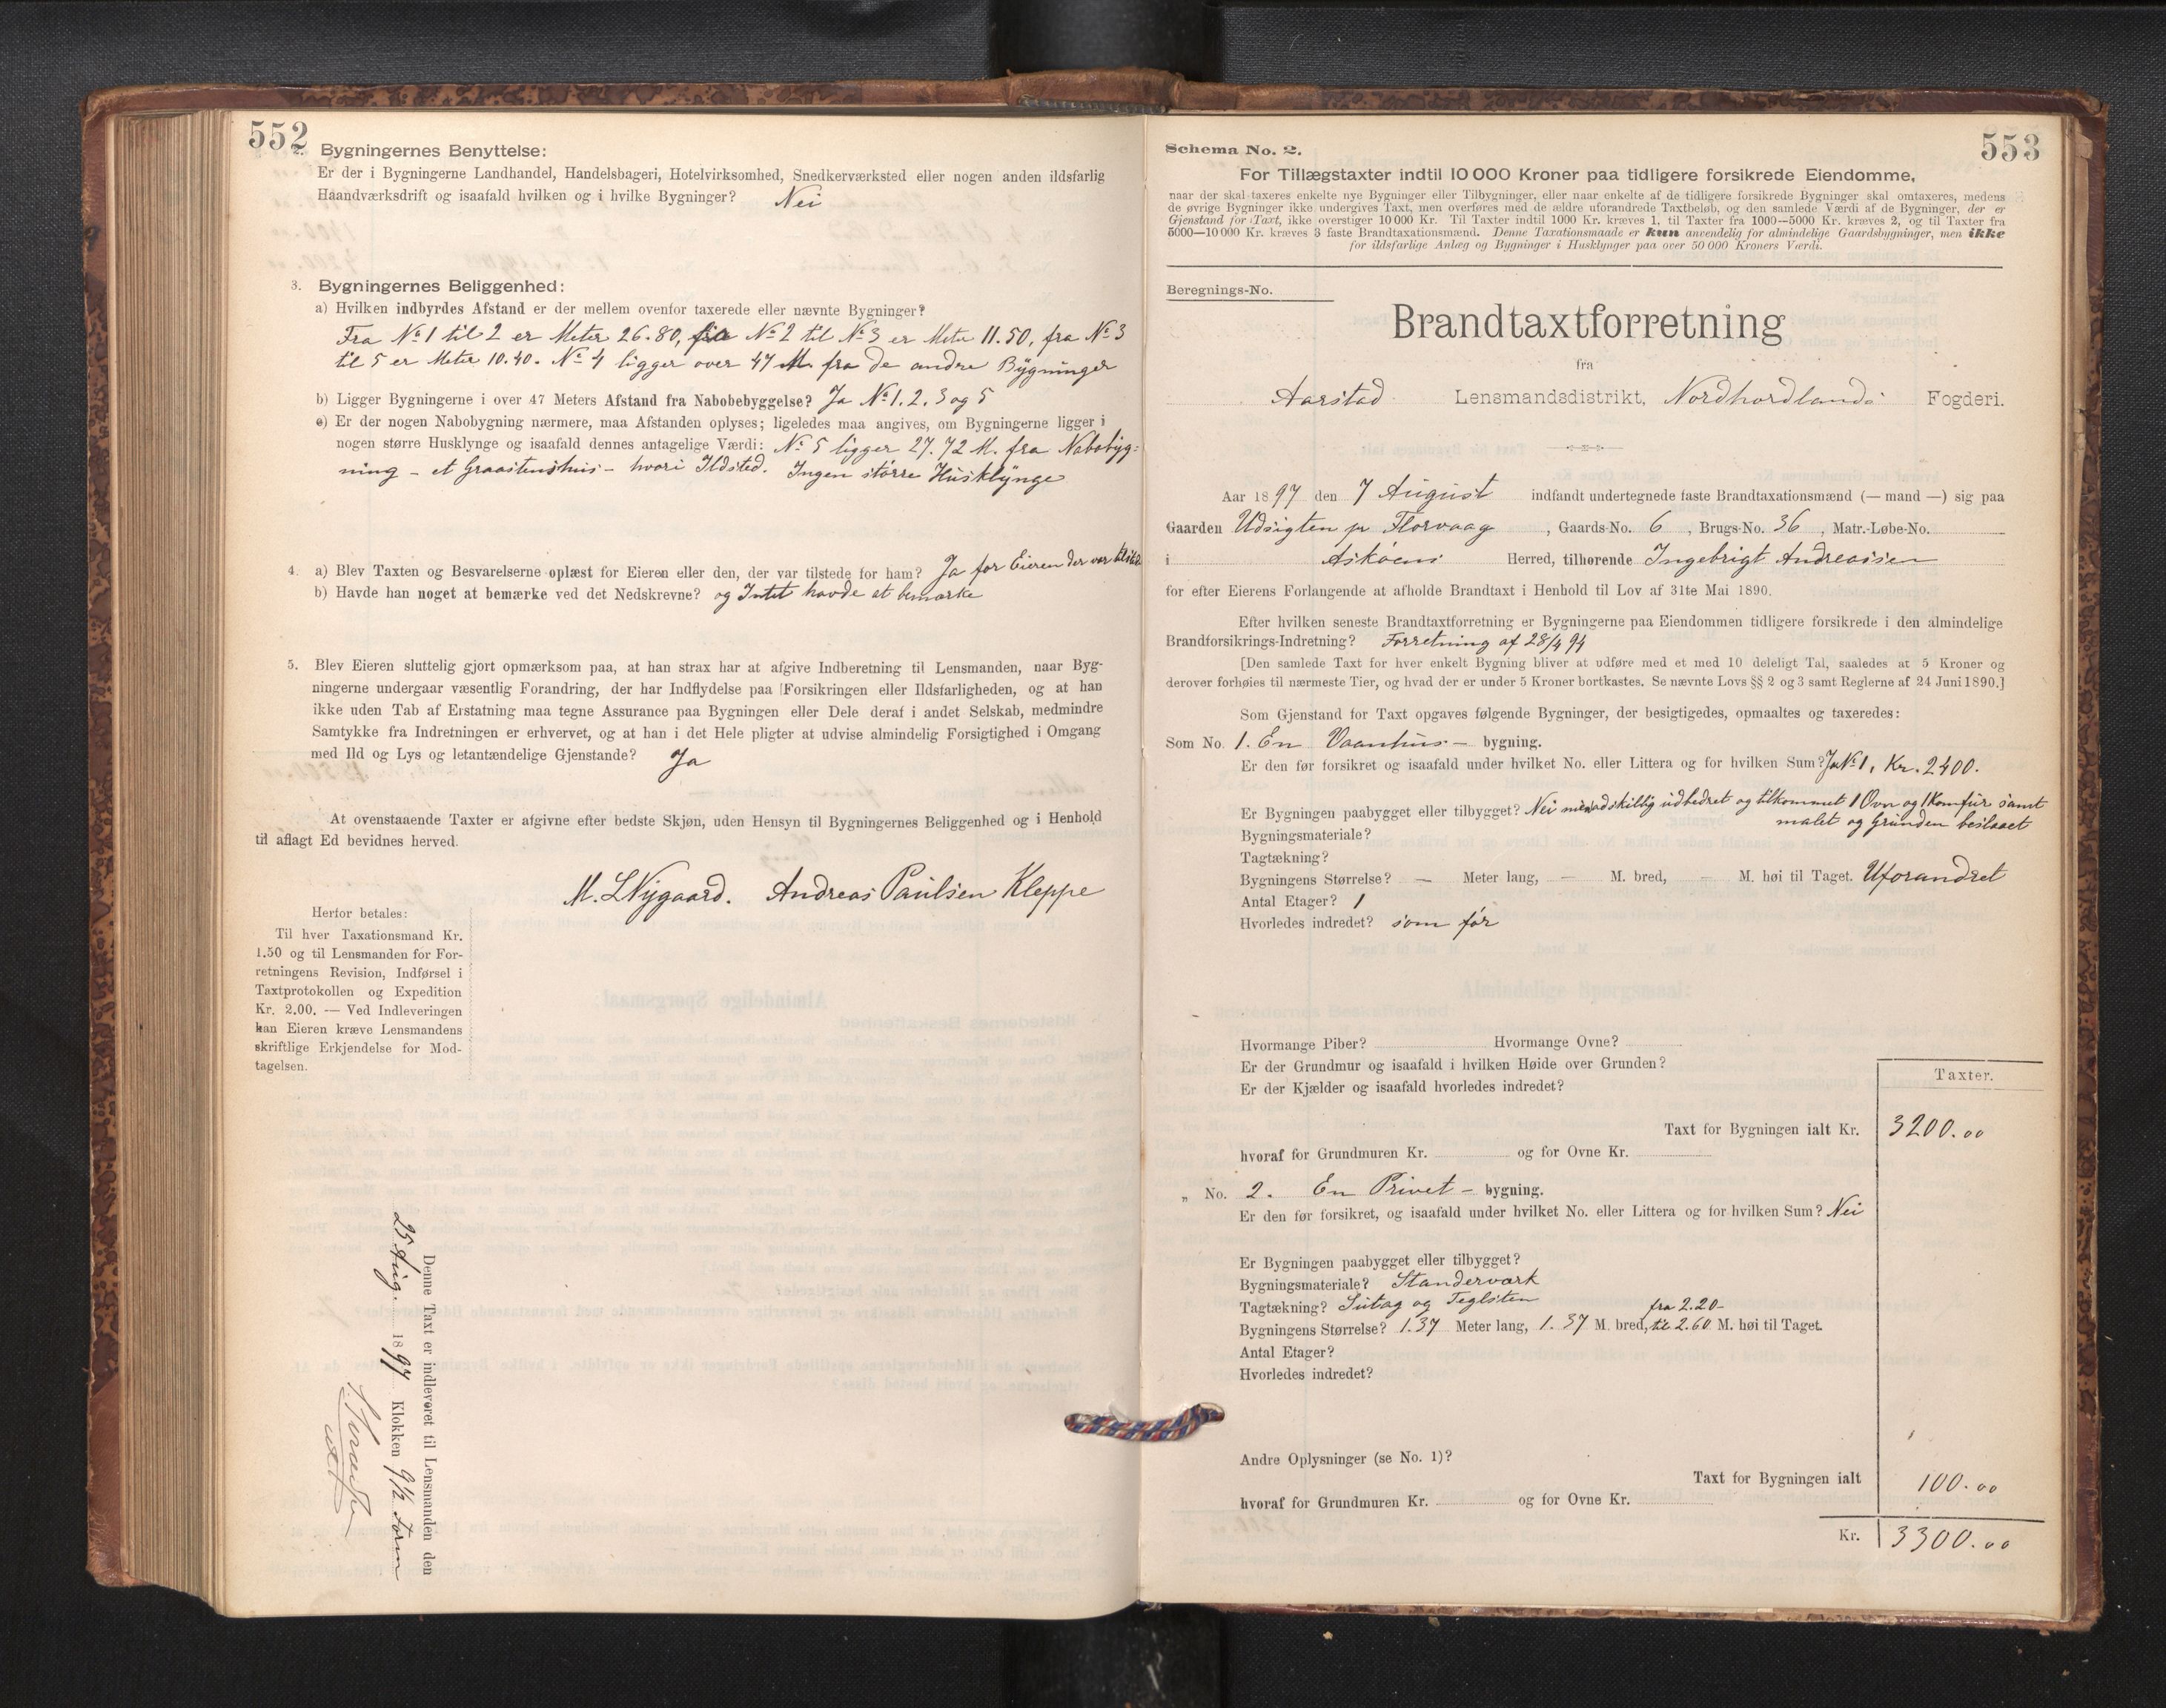 552
2. Bygningernes Benyttelse:
Er der i Bygningerne Landhandel, Handelsbageri, Hotelvirksomhed, Snedkerværksted eller nogen anden ildsfarlig
Haandværksdrift og isaafald hvilken og i hvilke Bygninger? Nei
3. Bygningernes Beliggenhed:
a) Hvilken indbyrdes Afstand er der mellem ovenfor taxerede eller nævnte Bygninger?
Fra No 1 til 2 er Meter 26.80, fra No 2 til No 3 er Meter 11.50, fra No 3
til 5 er Meter 10.40. No 4 ligger over 47 M. fra de andre Bygninger
b) Ligger Bygningerne i over 47 Meters Afstand fra Nabobebyggelse? Ja No 1. 2. 3 og 5
c) Er der nogen Nabobygning nærmere, maa Afstanden oplyses; ligeledes maa angives, om Bygningerne ligger i
nogen større Husklynge og isaafald dennes antagelige Værdi: No 5 ligger 27.72 M. fra Nabobyg-
ning - et Graastenshus - hvori Ildsted. Ingen større Husklynge
4. a) Blev Taxten og Besvarelserne oplæst for Eieren eller den, der var tilstede for ham? Ja for Eieren der var tilstede
b) Havde han noget at bemærke ved det Nedskrevne? og Intet havde at bemærke
5. Blev Eieren sluttelig gjort opmærksom paa, at han strax har at afgive Indberetning til Lensmanden, naar Byg-
ningerne undergaar væsentlig Forandring, der har Indflydelse paa Forsikringen eller Ildsfarligheden, og at han
ikke uden Tab af Erstatning maa tegne Assurance paa Bygningen eller Dele deraf i andet Selskab, medmindre
Samtykke fra Indretningen er erhvervet, og at han i det Hele pligter at udvise almindelig Forsigtighed i Omgang
med Ild og Lys og letantændelige Gjenstande? Ja
At ovenstaaende Taxter er afgivne efter bedste Skjøn, uden Hensyn til Bygningernes Beliggenhed og i Henhold
til aflagt Ed bevidnes herved.
M. L Nygaard. Andreas Paulsen Kleppe
Herfor betales:
Til hver Taxationsmand Kr.
1.50 og til Lensmanden for For-
retningens Revision, Indførsel i
Taxtprotokollen og Expedition
Kr. 2.00. — Ved Indleveringen
kan Eieren kræve Lensmandens
skriftlige Erkjendelse for Mod-
tagelsen.
Denne Taxt er indleveret til Lensmanden den
25 Aug. 1897 Klokken 9 1/2 Form
553
Schema No. 2.
For Tillægstaxter indtil 10 000 Kroner paa tidligere forsikrede Eiendomme,
naar der skal taxeres enkelte nye Bygninger eller Tilbygninger, eller naar enkelte af de tidligere forsikrede Bygninger skal omtaxeres, medens
de øvrige Bygninger ikke undergives Taxt, men overføres med de ældre uforandrede Taxtbeløb, og den samlede Værdi af de Bygninger, der er
Gjenstand for Taxt, ikke overstiger 10 000 Kr. Til Taxter indtil 1000 Kr. kræves 1, til Taxter fra 1000—5000 Kr. kræves 2, og til Taxter fra
5000—10 000 Kr. kræves 3 faste Brandtaxationsmænd. Denne Taxationsmaade er kun anvendelig for almindelige Gaardsbygninger, men ikke
for ildsfarlige Anlæg og Bygninger i Husklynger paa over 50 000 Kroners Værdi.
Beregnings-No.
Brandtaxtforretning
fra
Aarstad Lensmandsdistrikt, Nordhordlands Fogderi.
Aar 1897 den 7 August indfandt undertegnede faste Brandtaxationsmænd (— mand —) sig paa
Gaarden Udsigten pr Florvaag, Gaards-No. 6, Brugs-No. 36, Matr.-Løbe-No.
i Askøens Herred, tilhørende Ingebrigt Andreassen
for efter Eierens Forlangende at afholde Brandtaxt i Henhold til Lov af 31te Mai 1890.
Efter hvilken seneste Brandtaxtforretning er Bygningerne paa Eiendommen tidligere forsikrede i den almindelige
Brandforsikrings-Indretning? Forretning af 28/4 94
[Den samlede Taxt for hver enkelt Bygning bliver at udføre med et med 10 deleligt Tal, saaledes at 5 Kroner og
derover forhøies til nærmeste Tier, og hvad der er under 5 Kroner bortkastes. Se nævnte Lovs §§ 2 og 3 samt Reglerne af 24 Juni 1890.]
Som Gjenstand for Taxt opgaves følgende Bygninger, der besigtigedes, opmaaltes og taxeredes:
Som No. 1. En Vaanhus - bygning.
Er den før forsikret og isaafald under hvilket No. eller Littera og for hvilken Sum? Ja No 1, Kr. 2400.
Er Bygningen paabygget eller tilbygget? Nei men adskillig udbedret og tilkommet 1 Ovn og 1 Komfur samt
malet og Grunden beslaaet
Bygningsmateriale?
Tagtækning?
Bygningens Størrelse? — Meter lang, — M. bred, — M. høi til Taget. Uforandret
Antal Etager? 1
Hvorledes indredet? som før
Hvormange Piber? Hvormange Ovne?
Er der Grundmur og isaafald i hvilken Høide over Grunden?
Er der Kjælder og isaafald hvorledes indredet?
Taxter.
Taxt for Bygningen ialt Kr. 3200.00
hvoraf for Grundmuren Kr. og for Ovne Kr.
„ No. 2. En Privet - bygning.
Er den før forsikret, og isaafald under hvilket No. eller Littera og for hvilken Sum? Nei
Er Bygningen paabygget eller tilbygget?
Bygningsmateriale? Standerværk
Tagtækning? Sutag og Teglsten
fra 2.20-
Bygningens Størrelse? 1.37 Meter lang, 1.37 M. bred, til 2.60 M. høi til Taget.
Antal Etager?
Hvorledes indredet?
Andre Oplysninger (se No. 1)?
Taxt for Bygningen ialt 100.00
hvoraf for Grundmuren Kr. og for Ovne Kr.
Kr. 3300.00